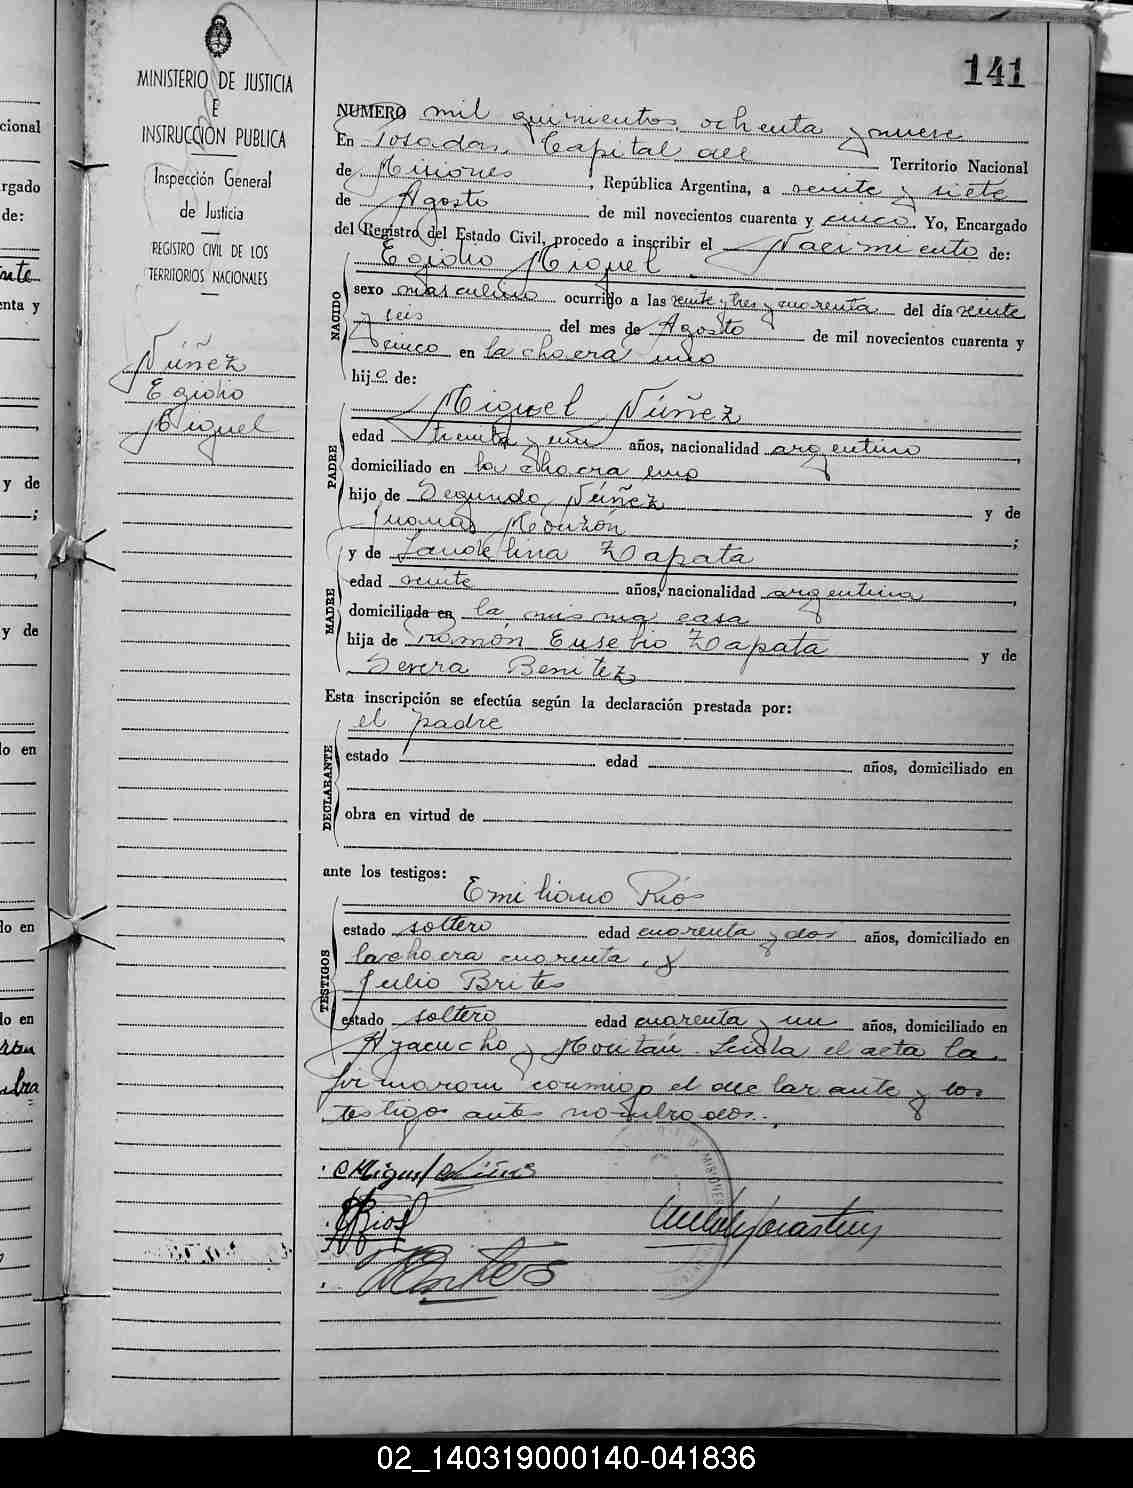 141
MINISTERIO DE JUSTICIA
E
INSTRUCCIÓN PUBLICA
Inspección General
de Justicia
REGISTRO CIVIL DE LOS
TERRITORIOS NACIONALES
Núñez
Egidio
Miguel
NUMERO mil quinientos ochenta y nueve
En Posadas, Capital del Territorio Nacional
de Misiones, República Argentina, a veinte y siete
de Agosto de mil novecientos cuarenta y cinco. Yo, Encargado
del Registro del Estado Civil, procedo a inscribir el Nacimiento de:
Egidio Miguel
NACIDO
sexo masculino ocurrido a las veinte y tres y cuarenta del día veinte
y seis del mes de Agosto de mil novecientos cuarenta y
cinco en la chacra uno
hijo de:
Miguel Núñez
PADRE
edad treinta y un años, nacionalidad argentino,
domiciliado en la chacra uno
hijo de Segundo Núñez y de
Juana Monzón;
y de Laudelina Zapata
MADRE
edad veinte años, nacionalidad argentina,
domiciliada en la misma casa
hija de Ramón Eusebio Zapata y de
Severa Benitez
Esta inscripción se efectúa según la declaración prestada por:
el padre
DECLARANTE
estado edad años, domiciliado en
obra en virtud de
ante los testigos:
Emiliano Ríos
TESTIGOS
estado soltero edad cuarenta y dos años, domiciliado en
la chacra cuarenta, y
Julio Brites
estado soltero edad cuarenta y un años, domiciliado en
Ayacucho y Moritán. Leída el acta la
firmaron conmigo el declarante y los
testigos antes nombrados.
Miguel Núñes
Rios
Brites
MISIONES
cional
rgado
de:
enta y
y de
;
y de
lo en
lo en
lo en
02_140319000140-041836